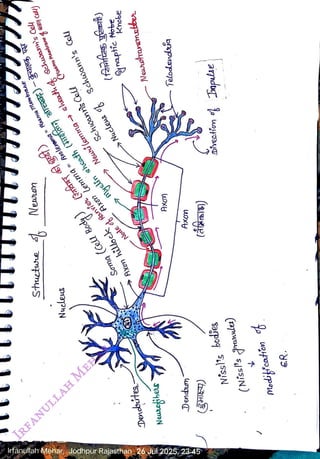 Structure of Neuron
Nucleus
Soma (Cell Body)
Axon hillock
Node of Ranvier
Axon Lemma
Myelin sheath
Neurilemma
Schwann's Cell
Nucleus of Schwann's Cell
Synaptic Knobe
Neurotransmitter
Telodendria
Direction of Impulse
Axon
Axon
(तंत्रिकाक्ष)
Dendrites
Neurofibers
Dendron
(द्रुमाश्य)
Nissl's bodies
(Nissl's granules)
↓
Modification of
ER.
IRFANULLAH ME
Irfanullah Mehar, Jodhpur Rajasthan 26 Jul 2025, 23:45